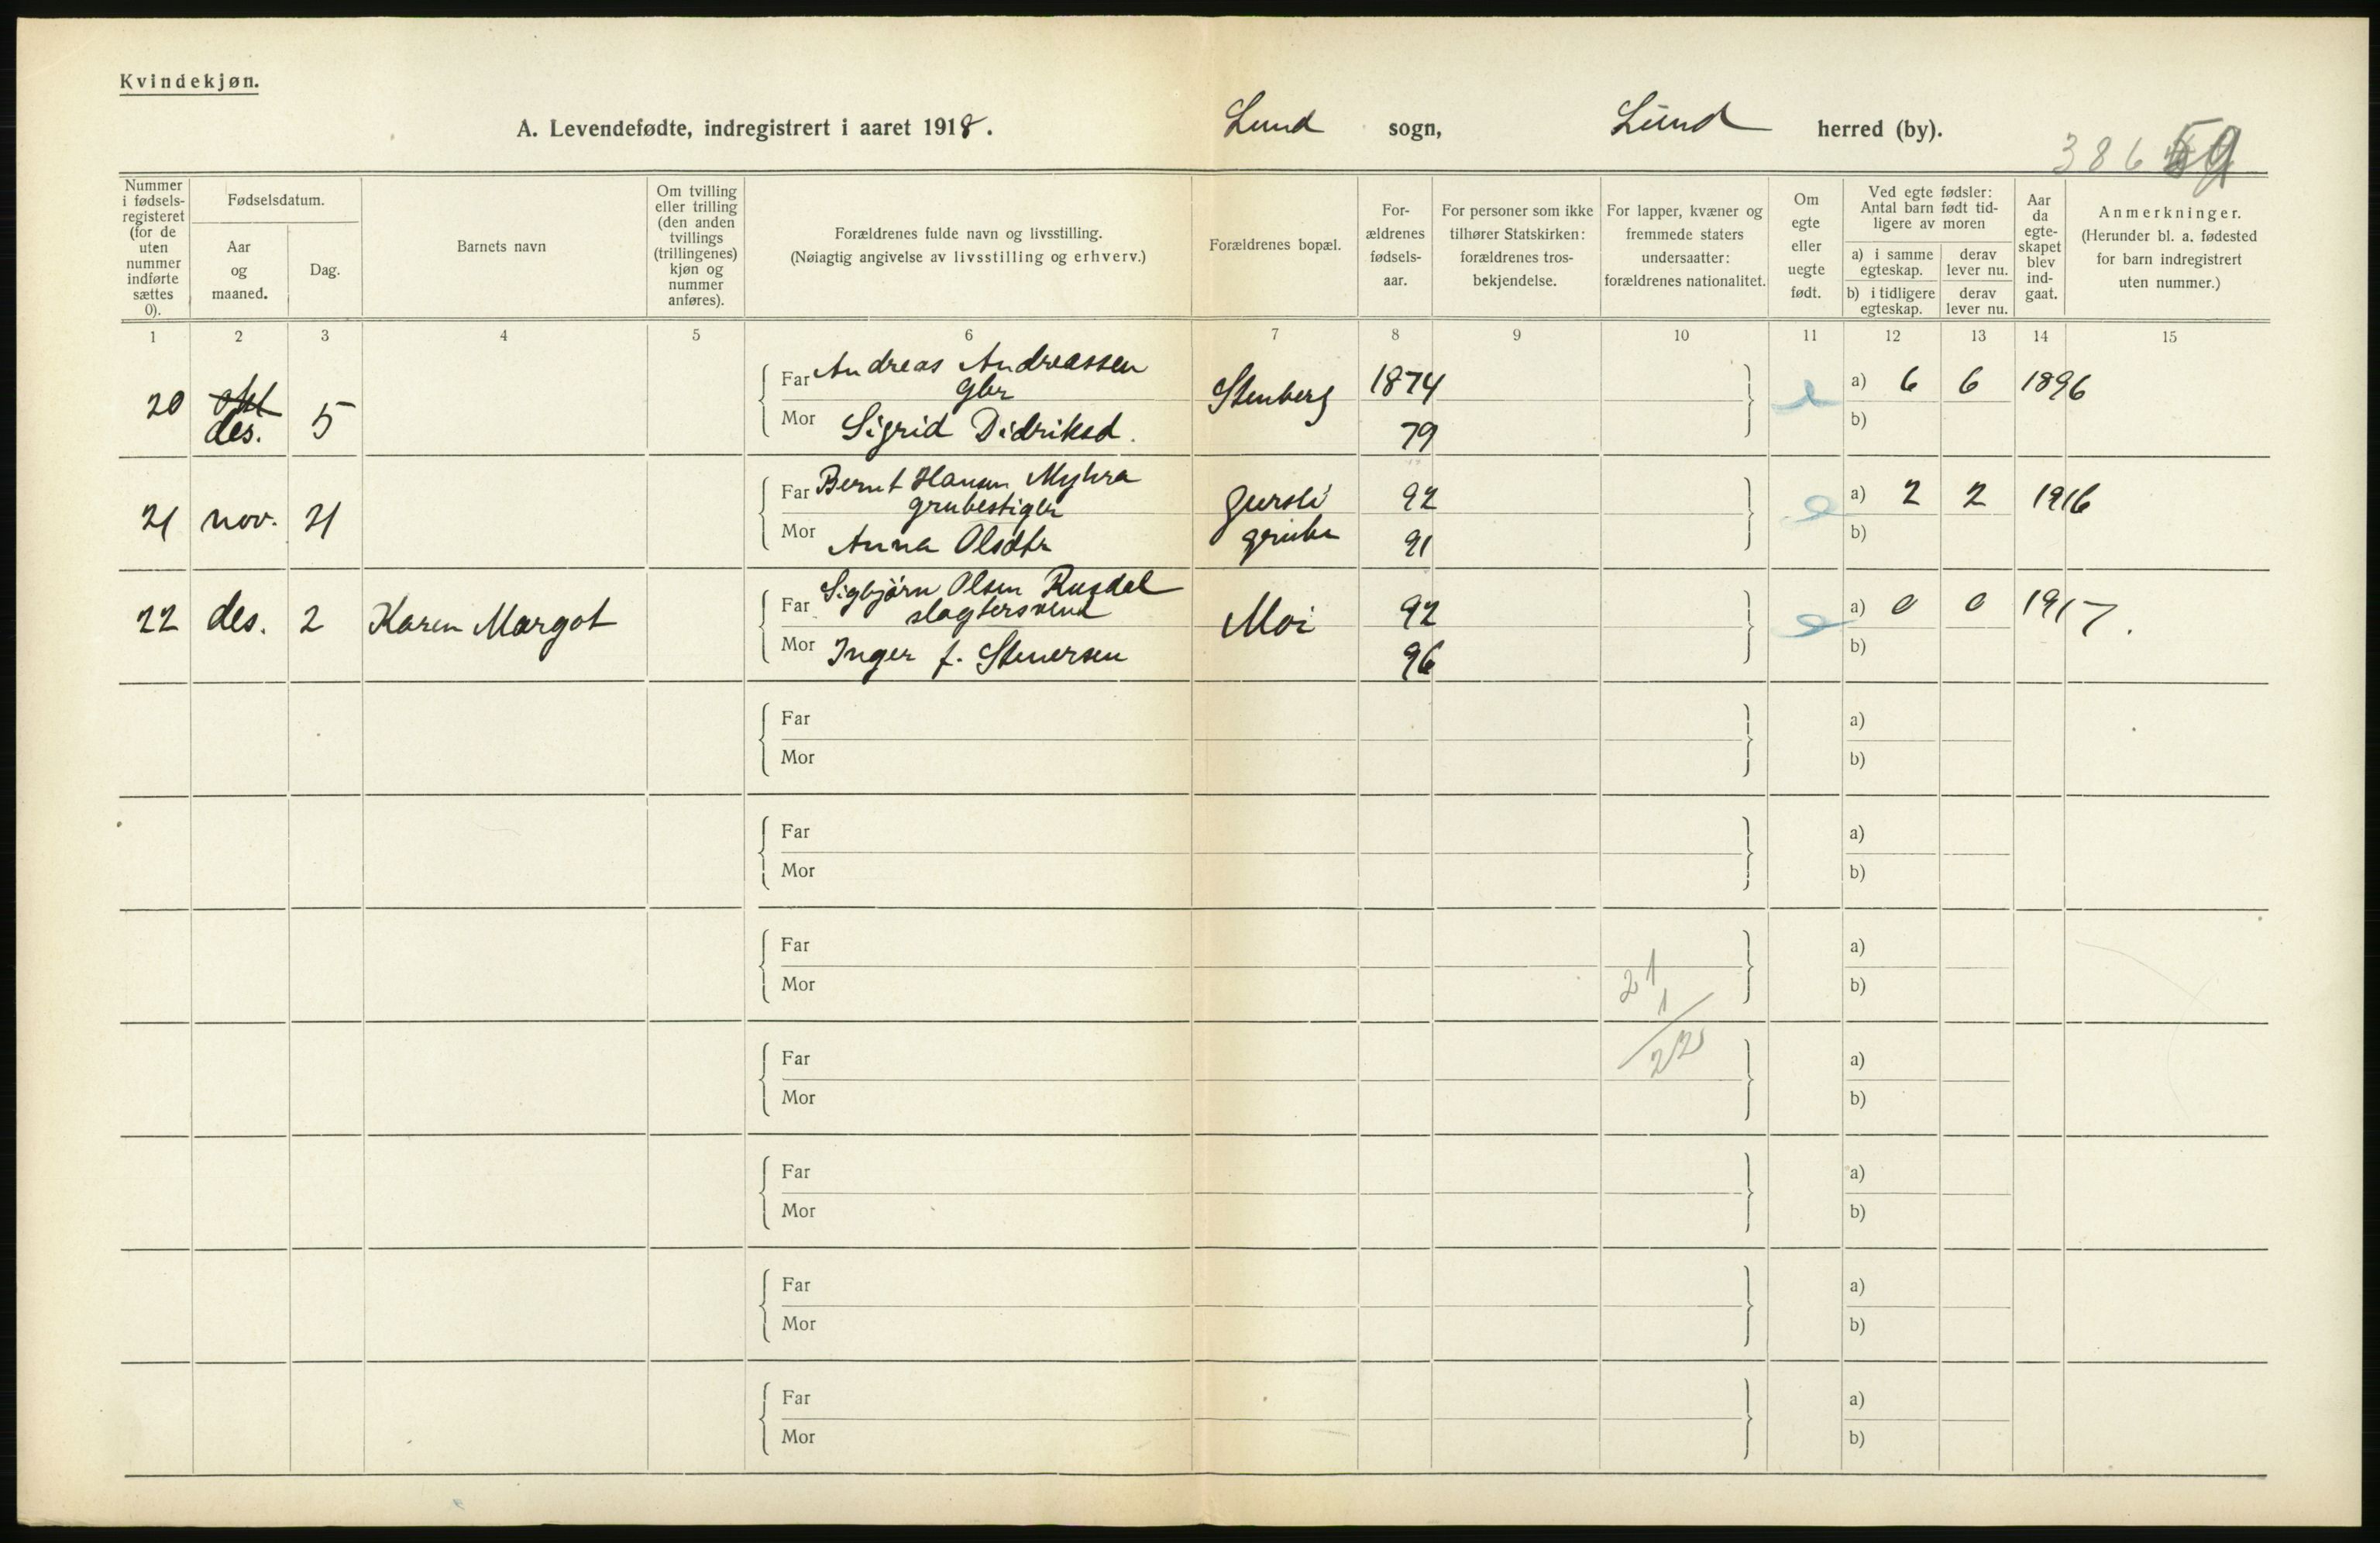 Kvindekjøn.
A. Levendefødte, indregistrert i aaret 1918. Lund sogn, Lund herred (by).
386 59
Nummer i fødsels-registeret (for de uten nummer indførte sættes 0).
Fødselsdatum.
Aar og maaned.
Dag.
Barnets navn
Om tvilling eller trilling (den anden tvillings (trillingenes) kjøn og nummer anføres).
Forældrenes fulde navn og livsstilling.
(Nøiagtig angivelse av livsstilling og erhverv.)
Forældrenes bopæl.
For-ældrenes fødsels-aar.
For personer som ikke tilhører Statskirken: forældrenes tros-bekjendelse.
For lapper, kvæner og fremmede staters undersaatter: forældrenes nationalitet.
Om egte eller uegte født.
Ved egte fødsler: Antal barn født tid-ligere av moren
a) i samme egteskap.
derav lever nu.
b) i tidligere egteskap.
derav lever nu.
Aar da egte-skapet blev ind-gaat.
Anmerkninger.
(Herunder bl. a. fødested for barn indregistrert uten nummer.)
1 2 3 4 5 6 7 8 9 10 11 12 13 14 15
Far Andreas Andreassen
gbr
20 okt des. 5 Stenberg 1874 e a) 6 6 1896
Mor Sigrid Didriksd. 79 b)
Far Bernt Hansen Myhra
grubestiger
21 nov. 21 Gursli grube 92 e a) 2 2 1916
Mor Anna Olsdtr 91 b)
Far Sigbjørn Olsen Rusdal
slagtersvend
22 des. 2 Karen Margot Moi 92 e a) 0 0 1917.
Mor Inger f. Stenersen 96 b)
Far a)
Mor b)
Far a)
Mor b)
Far a)
Mor 21 b)
1
22
Far a)
Mor b)
Far a)
Mor b)
Far a)
Mor b)
Far a)
Mor b)